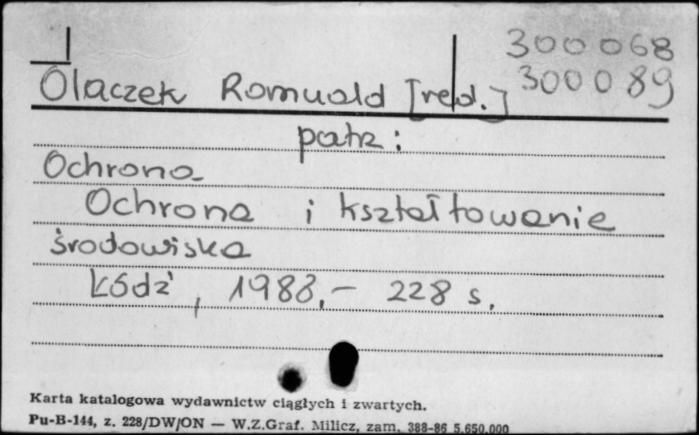 300 068
Olaczek Romuald [red.] 300 0 89
patrz:
Ochrona
Ochrona i kształtowanie
środowiska
Łódź, 1988.- 228 s.
Karta katalogowa wydawnictw ciągłych i zwartych.
Pu-B-144, z. 228/DW/ON — W.Z.Graf. Milicz, zam. 388-86 5.650.000